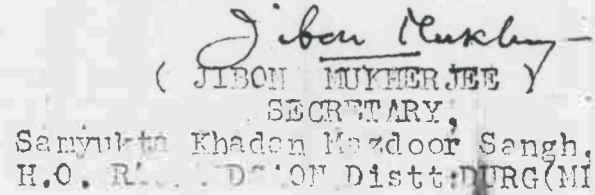 Jibon Mukherjee
( JIBON MUKHERJEE )
SECRETARY,
Samyukta Khadan Mazdoor Sangh,
H.O. Distt:DURG(MP